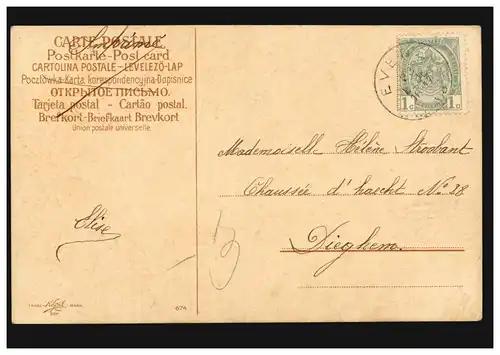 CARTE POSTALE
Imprimé
Postkarte-Post card
CARTOLINA POSTALE-LEVELEZÖ-LAP
Pocztówka-Karta korespondencyjna-Dopisnice
ОТКРЫТОЕ ПИСЬМО.
Tarjeta postal - Cartão postal.
Brefkort-Briefkaart Brevkort
Union postale universelle.
EVE
1c 1c
Mademoiselle Hélène Stroobant
Chaussée d'haecht No 28
Dieghem.
Elise
5
TRADE MARK
674